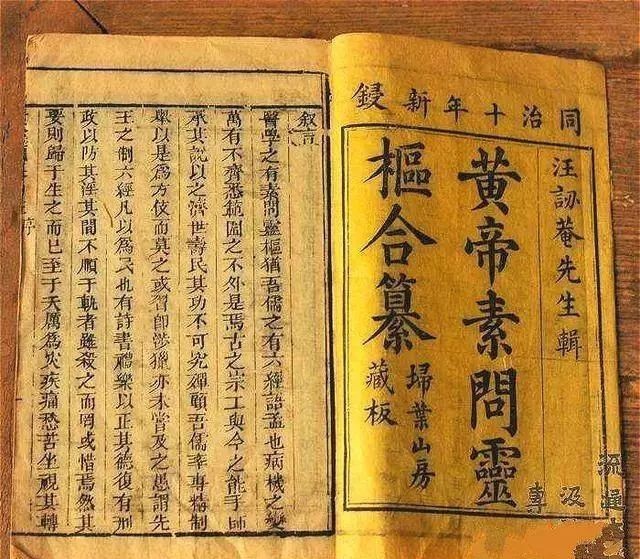 同治十年新鋟
汪訒菴先生輯
黃帝素問靈
樞合纂
埽葉山房
藏板
叙言
醫學之有素問靈樞猶吾儒之有六經語孟也病機之變
萬有不齊悉範圍之不外是焉古之宗工與今之能手師
承其說以之濟世壽民其功不可究殫顧吾儒率專精制
舉以是為方伎而莫之或習即涉獵亦未嘗及之愚謂先
王之制六經凡以為民也有詩書禮樂以正其德復有刑
政以防其淫其間不順于軌者雖殺之而罔或惜焉然其
要則歸于生之而已至于夭厲為災疾痛愁苦坐視其轉